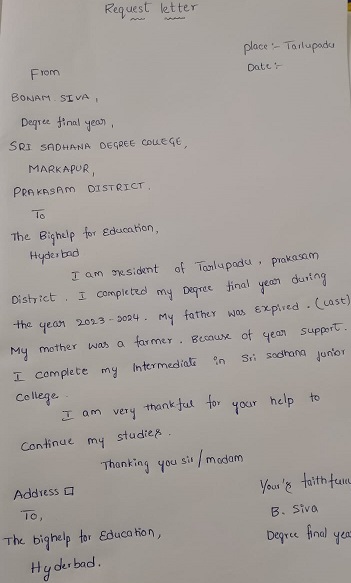 Request letter
place :- Tarlupadu
Date :-
From
BONAM SIVA,
Degree final year,
SRI SADHANA DEGREE COLLEGE,
MARKAPUR,
PRAKASAM DISTRICT.
To
The Bighelp for Education,
Hyderbad
I am resident of Tarlupadu, prakasam
District. I completed my Degree final year during
the year 2023-2024. My father was Expired. (Last)
My mother was a farmer. Because of year support.
I complete my Intermediate in Sri sadhana junior
college.
I am very thankful for your help to
continue my studies.
Thanking you sir/madam
Your's faithfull
Address
B. Siva
To,
Degree final yea
The bighelp for Education,
Hyderbad.